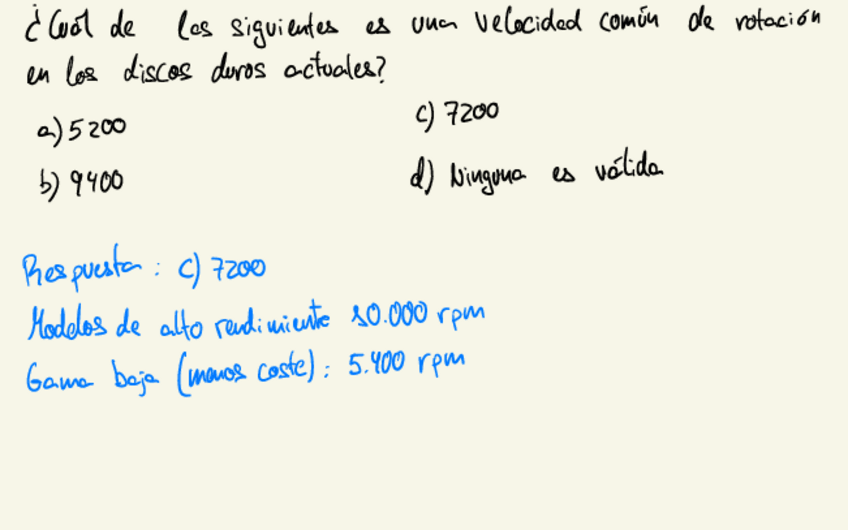 ¿Cuál de las siguientes es una velocidad común de rotación
en los discos duros actuales?
a) 5200
c) 7200
b) 9400
d) Ninguna es válida
Respuesta: c) 7200
Modelos de alto rendimiento 10.000 rpm
Gama baja (menos coste): 5.400 rpm